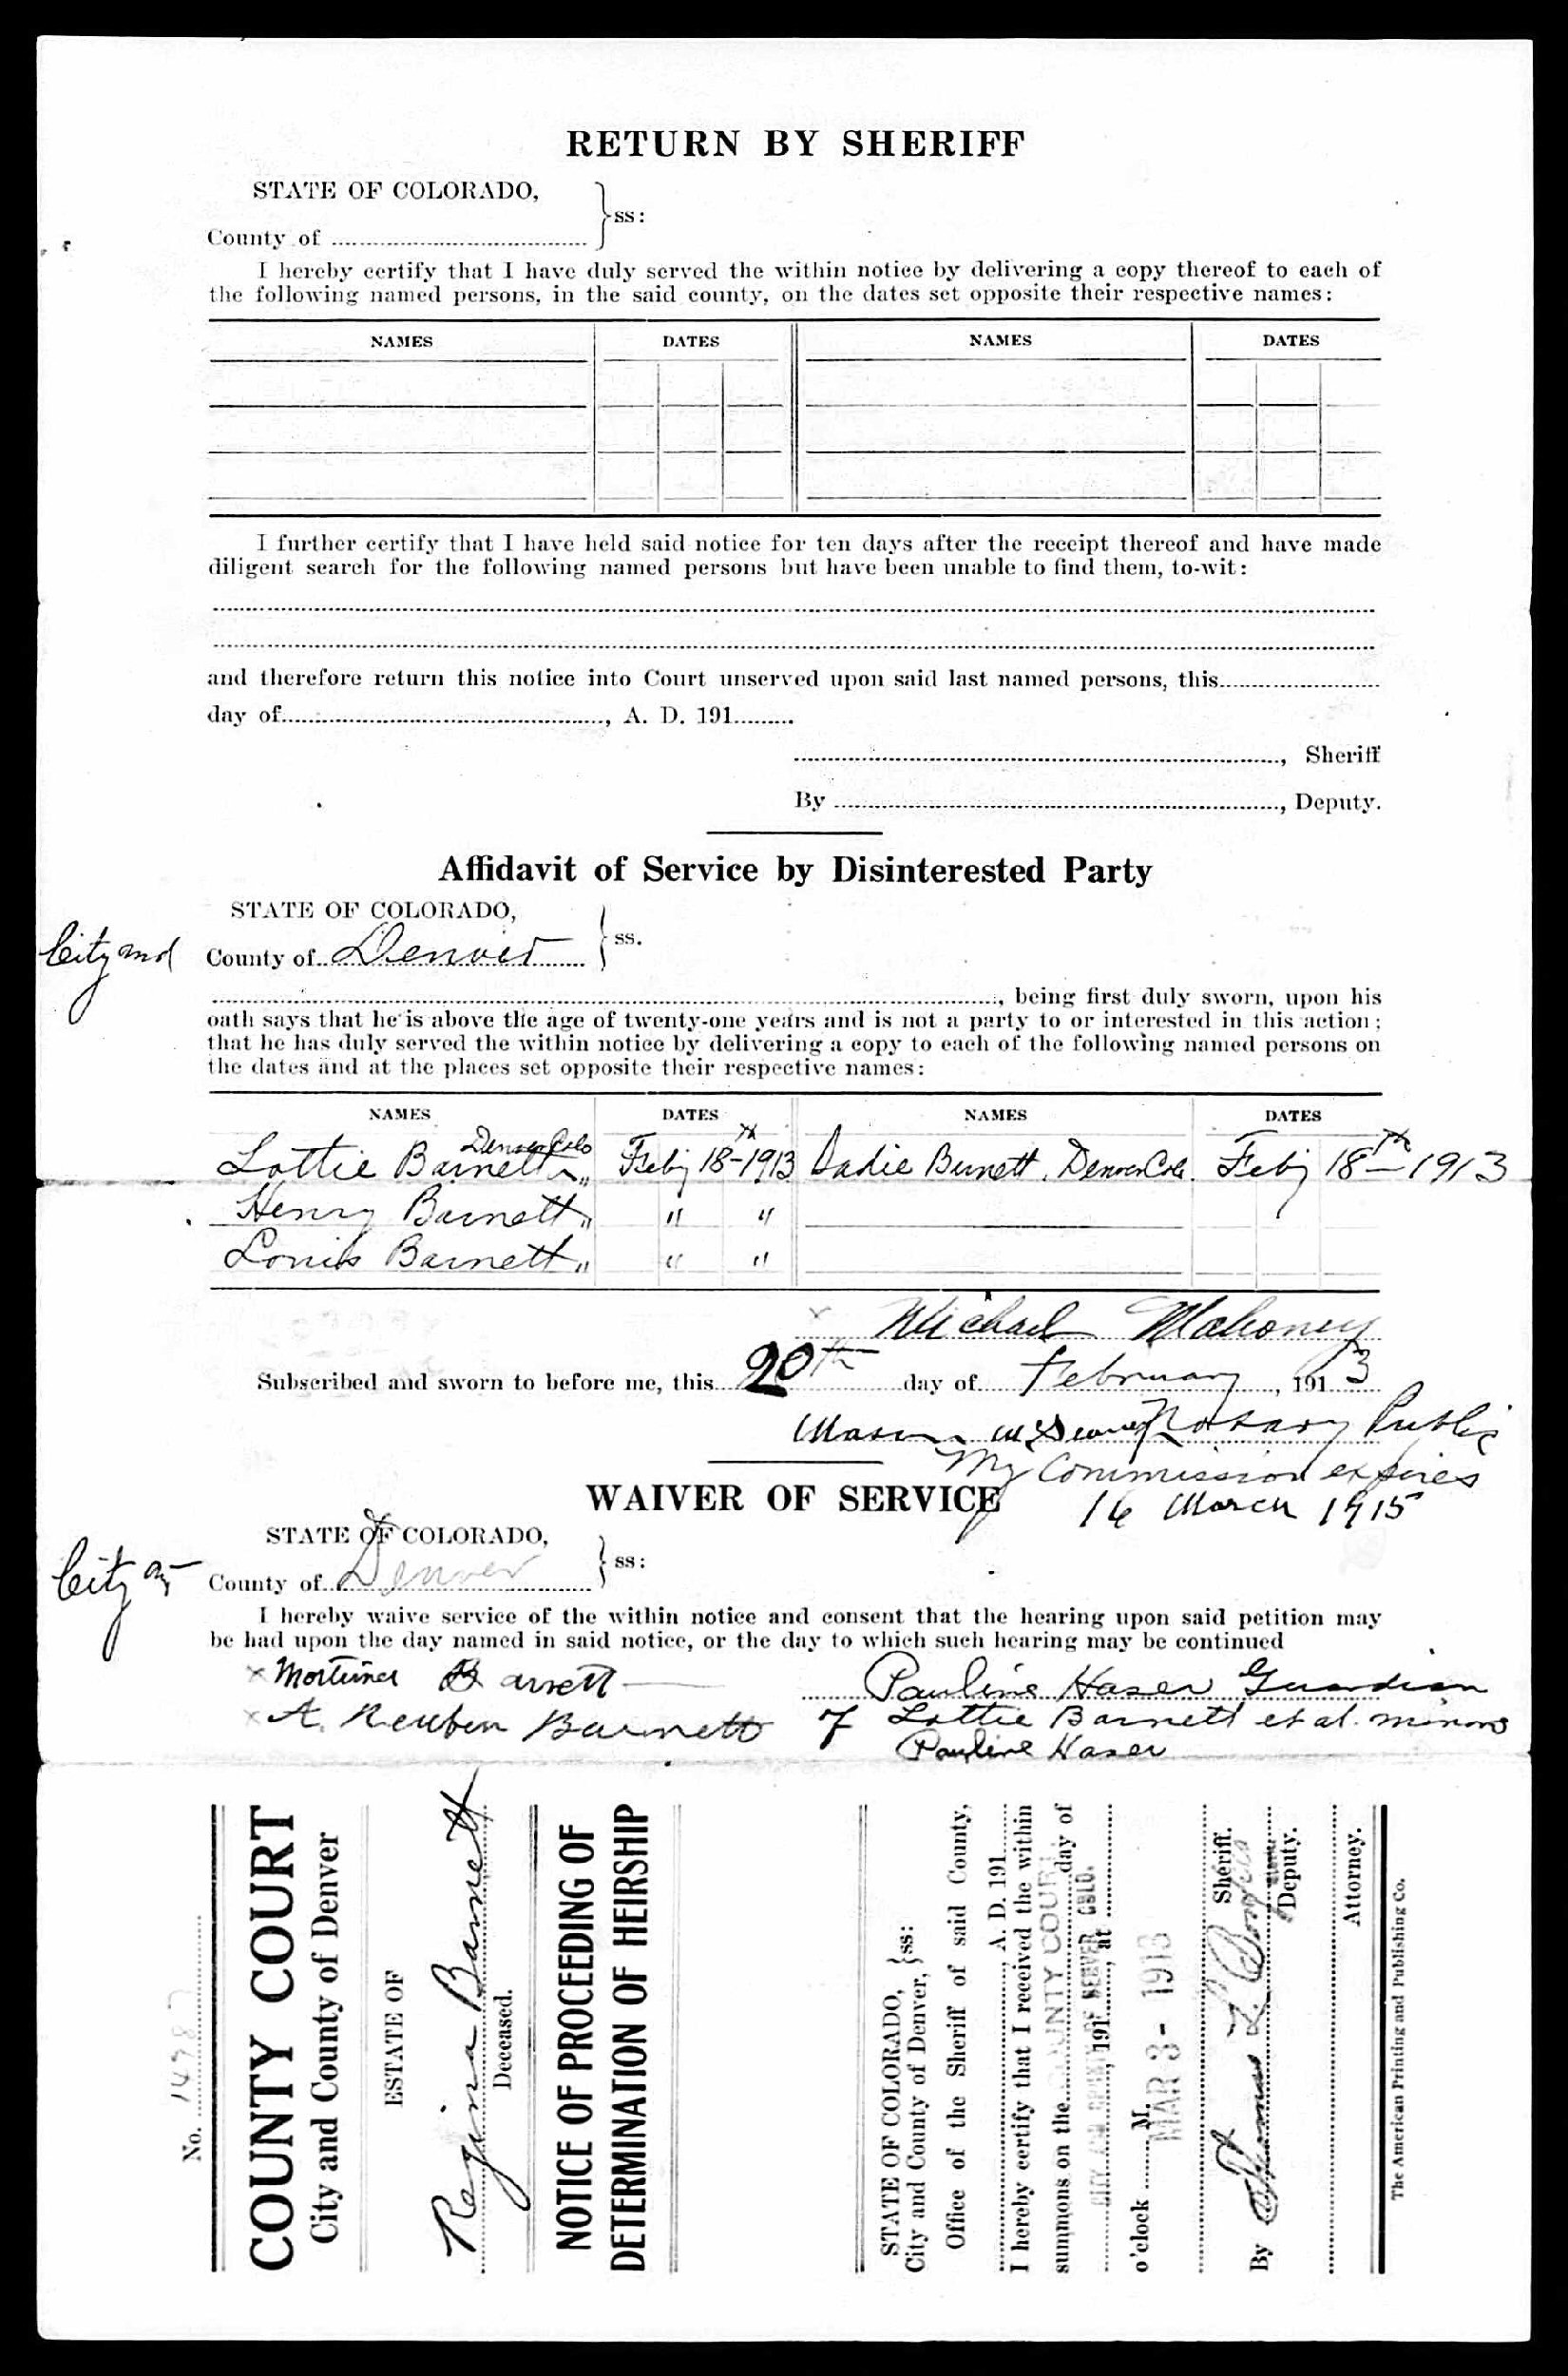 RETURN BY SHERIFF
STATE OF COLORADO,
ss:
County of
I hereby certify that I have duly served the within notice by delivering a copy thereof to each of
the following named persons, in the said county, on the dates set opposite their respective names:
NAMES DATES NAMES DATES
I further certify that I have held said notice for ten days after the receipt thereof and have made
diligent search for the following named persons but have been unable to find them, to-wit:
and therefore return this notice into Court unserved upon said last named persons, this
day of, A. D. 191
, Sheriff
By, Deputy.
Affidavit of Service by Disinterested Party
STATE OF COLORADO,
ss.
City and County of Denver
, being first duly sworn, upon his
oath says that he is above the age of twenty-one years and is not a party to or interested in this action;
that he has duly served the within notice by delivering a copy to each of the following named persons on
the dates and at the places set opposite their respective names:
NAMES DATES NAMES DATES
Lottie Barnett Denver Colo Feby 18th-1913 Sadie Burnett, Denver Colo. Feby 18th-1913
Henry Barnett " " "
Louis Barnett " " "
x Michael Mahoney
Subscribed and sworn to before me, this 20th day of February, 1913
Mason Notary Public
My Commission expires
16 March 1915
WAIVER OF SERVICE
STATE OF COLORADO,
ss:
City County of Denver
I hereby waive service of the within notice and consent that the hearing upon said petition may
be had upon the day named in said notice, or the day to which such hearing may be continued
x Mortimer Barnett Pauline Haser Guardian
x A. Reuben Barnett of Lottie Barnett et al. minors
Pauline Haser
No.
COUNTY COURT
City and County of Denver
ESTATE OF
Regina Barnett
Deceased.
NOTICE OF PROCEEDING OF
DETERMINATION OF HEIRSHIP
STATE OF COLORADO,
City and County of Denver, ss:
Office of the Sheriff of said County,
, A. D. 191
I hereby certify that I received the within
summons on the day of
COUNTY COURT
, 191, at
CITY AND COUNTY OF DENVER COLO.
o'clock M.
MAR 3 - 1913
Sheriff.
Thomas L.
By Deputy.
Attorney.
The American Printing and Publishing Co.